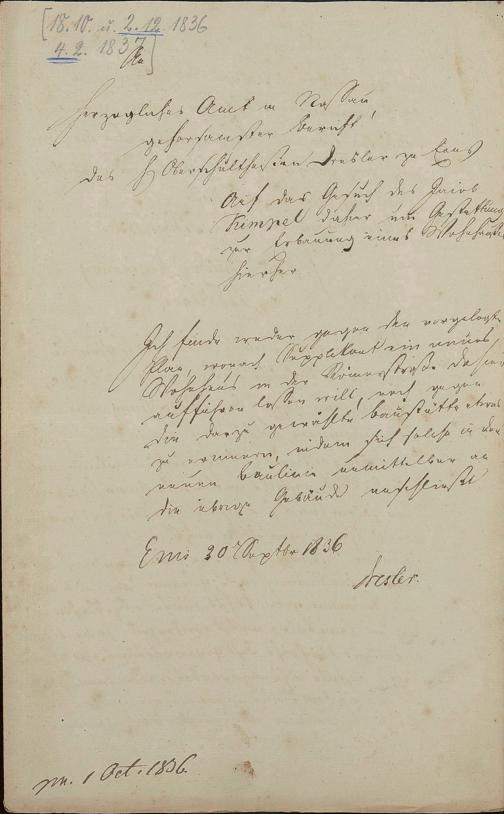 [18.10. u. 2.12. 1836
4.2. 1837]
An
Herzogliches Amt in Nassau,
gehorsamster Bericht
des H Oberschultheißen Dresler zu Ems
Auf das Gesuch des Jacob
Kimpel daher um Gestattung
zur Erbauung eines Wohnhauses
hierher
Ich finde weder gegen den vorgelegten
Plan, wonach Supplikant ein neues
Wohnhaus in der Römerstraße dahier
aufführen lassen will, noch gegen
die dazu gewählte Baustätte etwas
zu erinnern, indem sich solche in der
neuen Baulinie unmittelbar an
die übrige Gebäude anschließt
Ems 20 Septbr 1836
Dresler.
pn. 1 Oct. 1836.